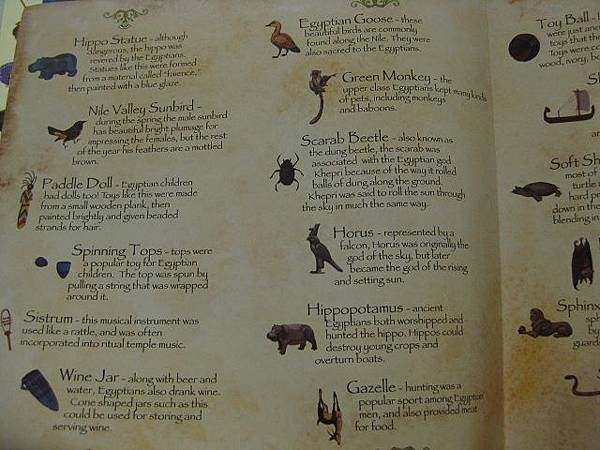 Hippo Statue - although
dangerous, the hippo was
revered by the Egyptians.
Statues like this were formed
from a material called "faience,"
then painted with a blue glaze.
Nile Valley Sunbird -
during the spring the male sunbird
has beautiful bright plumage for
impressing the females, but the rest
of the year his feathers are a mottled
brown.
Paddle Doll - Egyptian children
had dolls too! Toys like this were made
from a small wooden plank, then
painted brightly and given beaded
strands for hair.
Spinning Tops - tops were
a popular toy for Egyptian
children. The top was spun by
pulling a string that was wrapped
around it.
Sistrum - this musical instrument was
used like a rattle, and was often
incorporated into ritual temple music.
Wine Jar - along with beer and
water, Egyptians also drank wine.
Cone shaped jars such as this
could be used for storing and
serving wine.
Egyptian Goose - these
beautiful birds are commonly
found along the Nile. They were
also sacred to the Egyptians.
Green Monkey - the
upper class Egyptians kept many kinds
of pets, including monkeys
and baboons.
Scarab Beetle - also known as
the dung beetle, the scarab was
associated with the Egyptian god
Khepri because of the way it rolled
balls of dung along the ground.
Khepri was said to roll the sun through
the sky in much the same way.
Horus - represented by a
falcon, Horus was originally the
god of the sky, but later
became the god of the rising
and setting sun.
Hippopotamus - ancient
Egyptians both worshipped and
hunted the hippo. Hippos could
destroy young crops and
overturn boats.
Gazelle - hunting was a
popular sport among Egyptian
men, and also provided meat
for food.
Toy Ball -
were just
toys that
Toys were
wood, ivory,
Soft
most of
turtle
hard
down in the
blending in
Sphinx
by